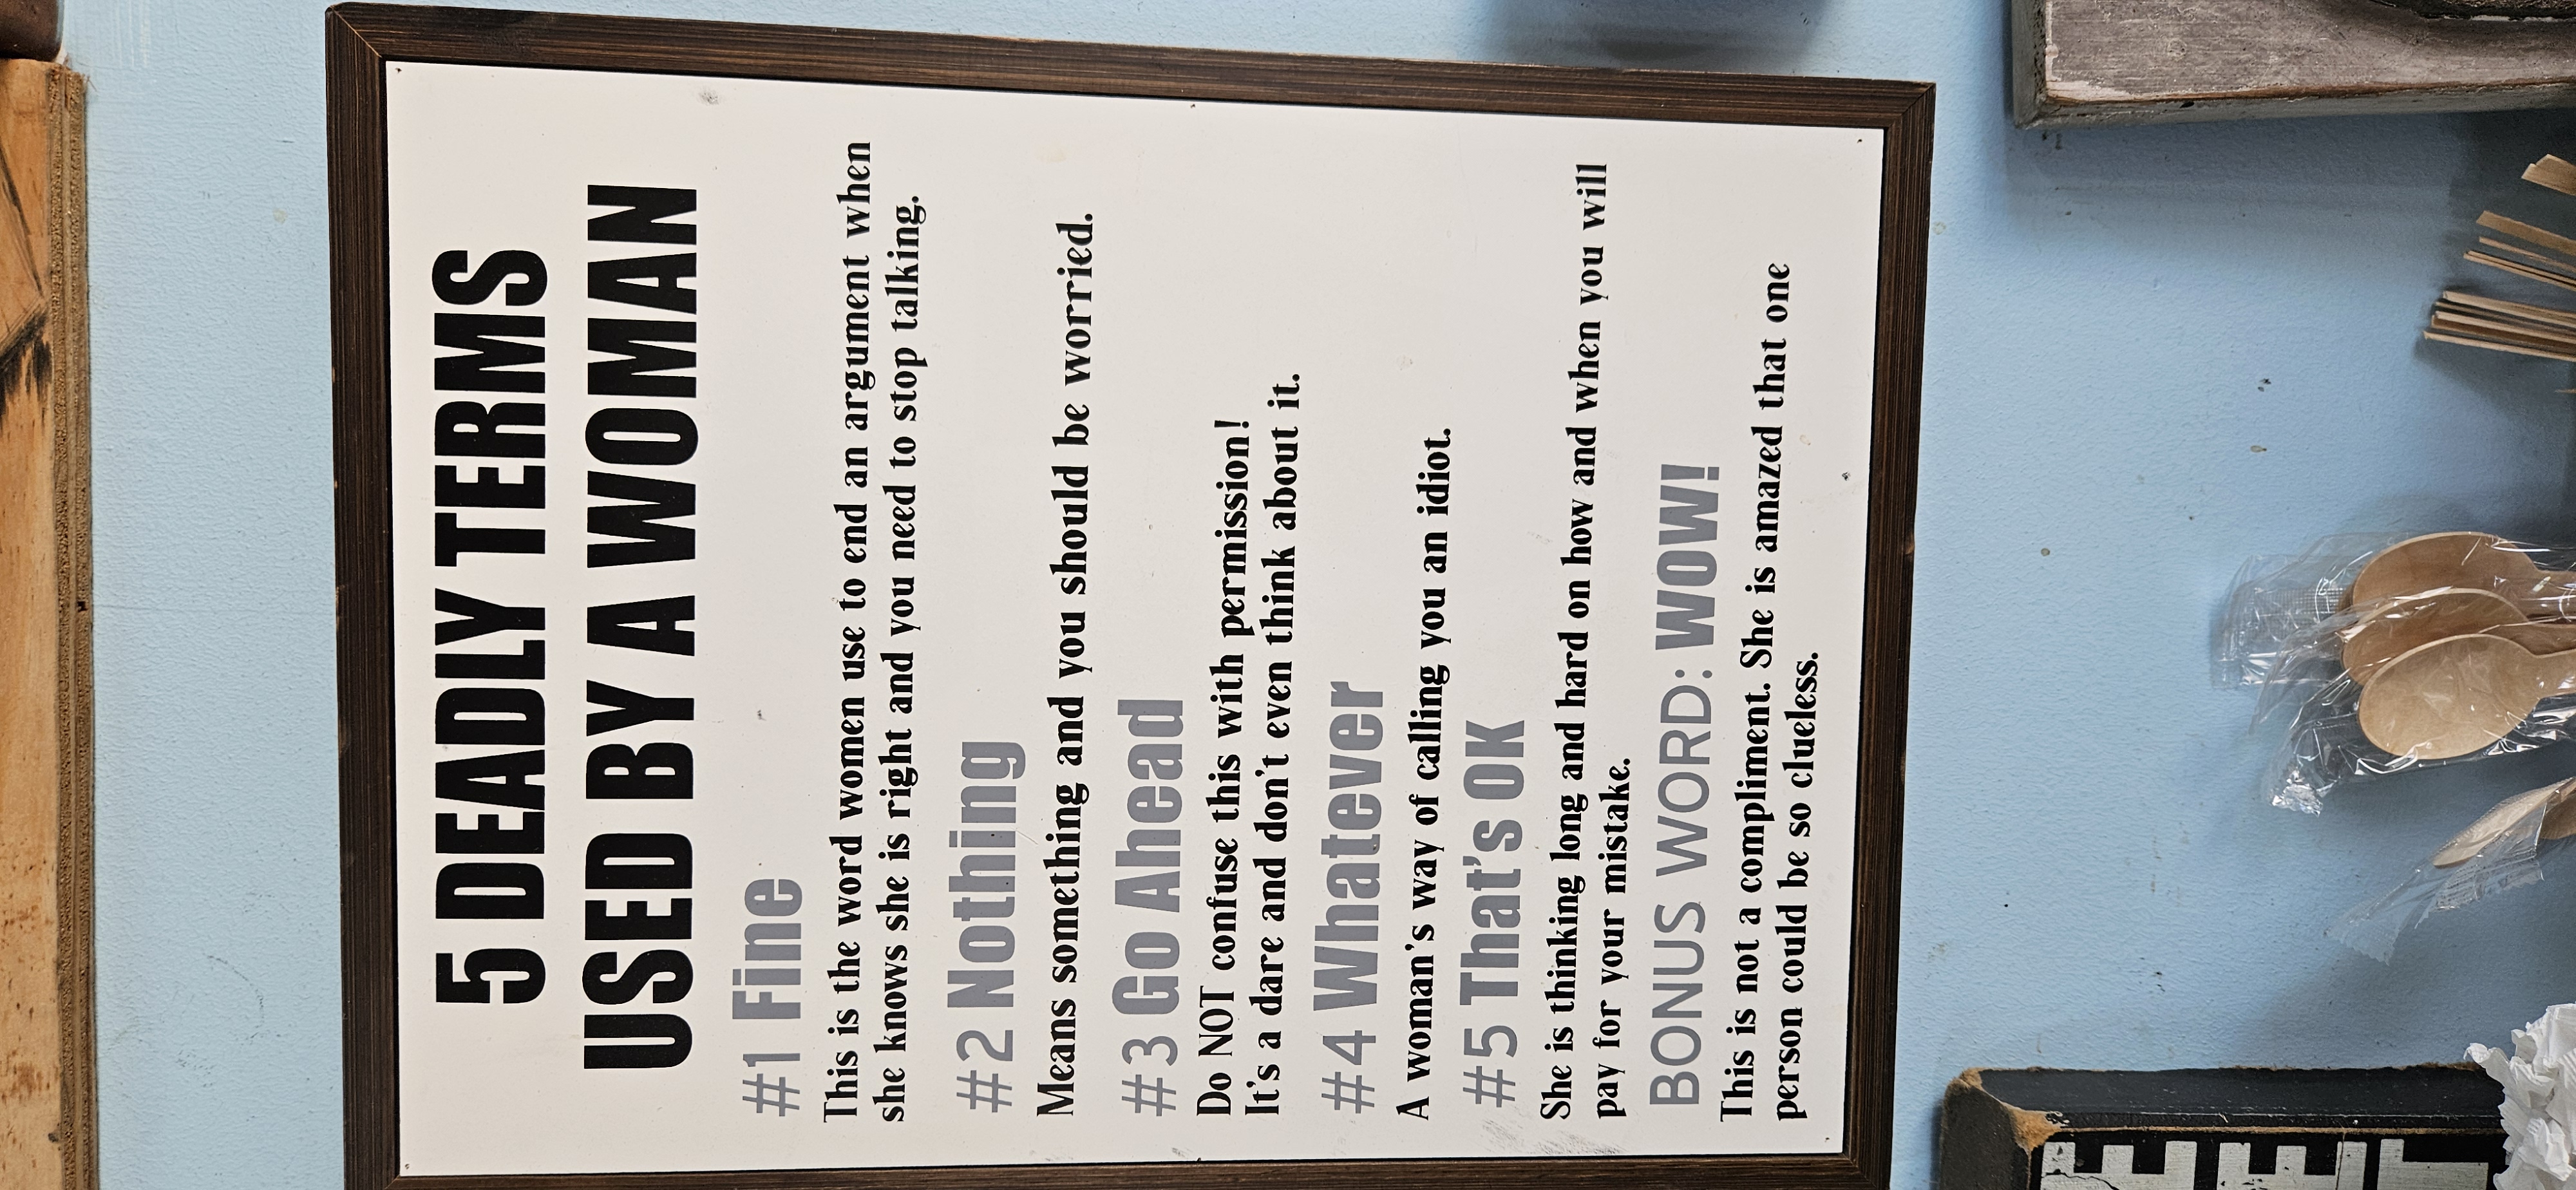 5 DEADLY TERMS
USED BY A WOMAN
#1 Fine
This is the word women use to end an argument when
she knows she is right and you need to stop talking.
#2 Nothing
Means something and you should be worried.
#3 Go Ahead
Do NOT confuse this with permission!
It's a dare and don't even think about it.
#4 Whatever
A woman's way of calling you an idiot.
#5 That's OK
She is thinking long and hard on how and when you will
pay for your mistake.
BONUS WORD: WOW!
This is not a compliment. She is amazed that one
person could be so clueless.